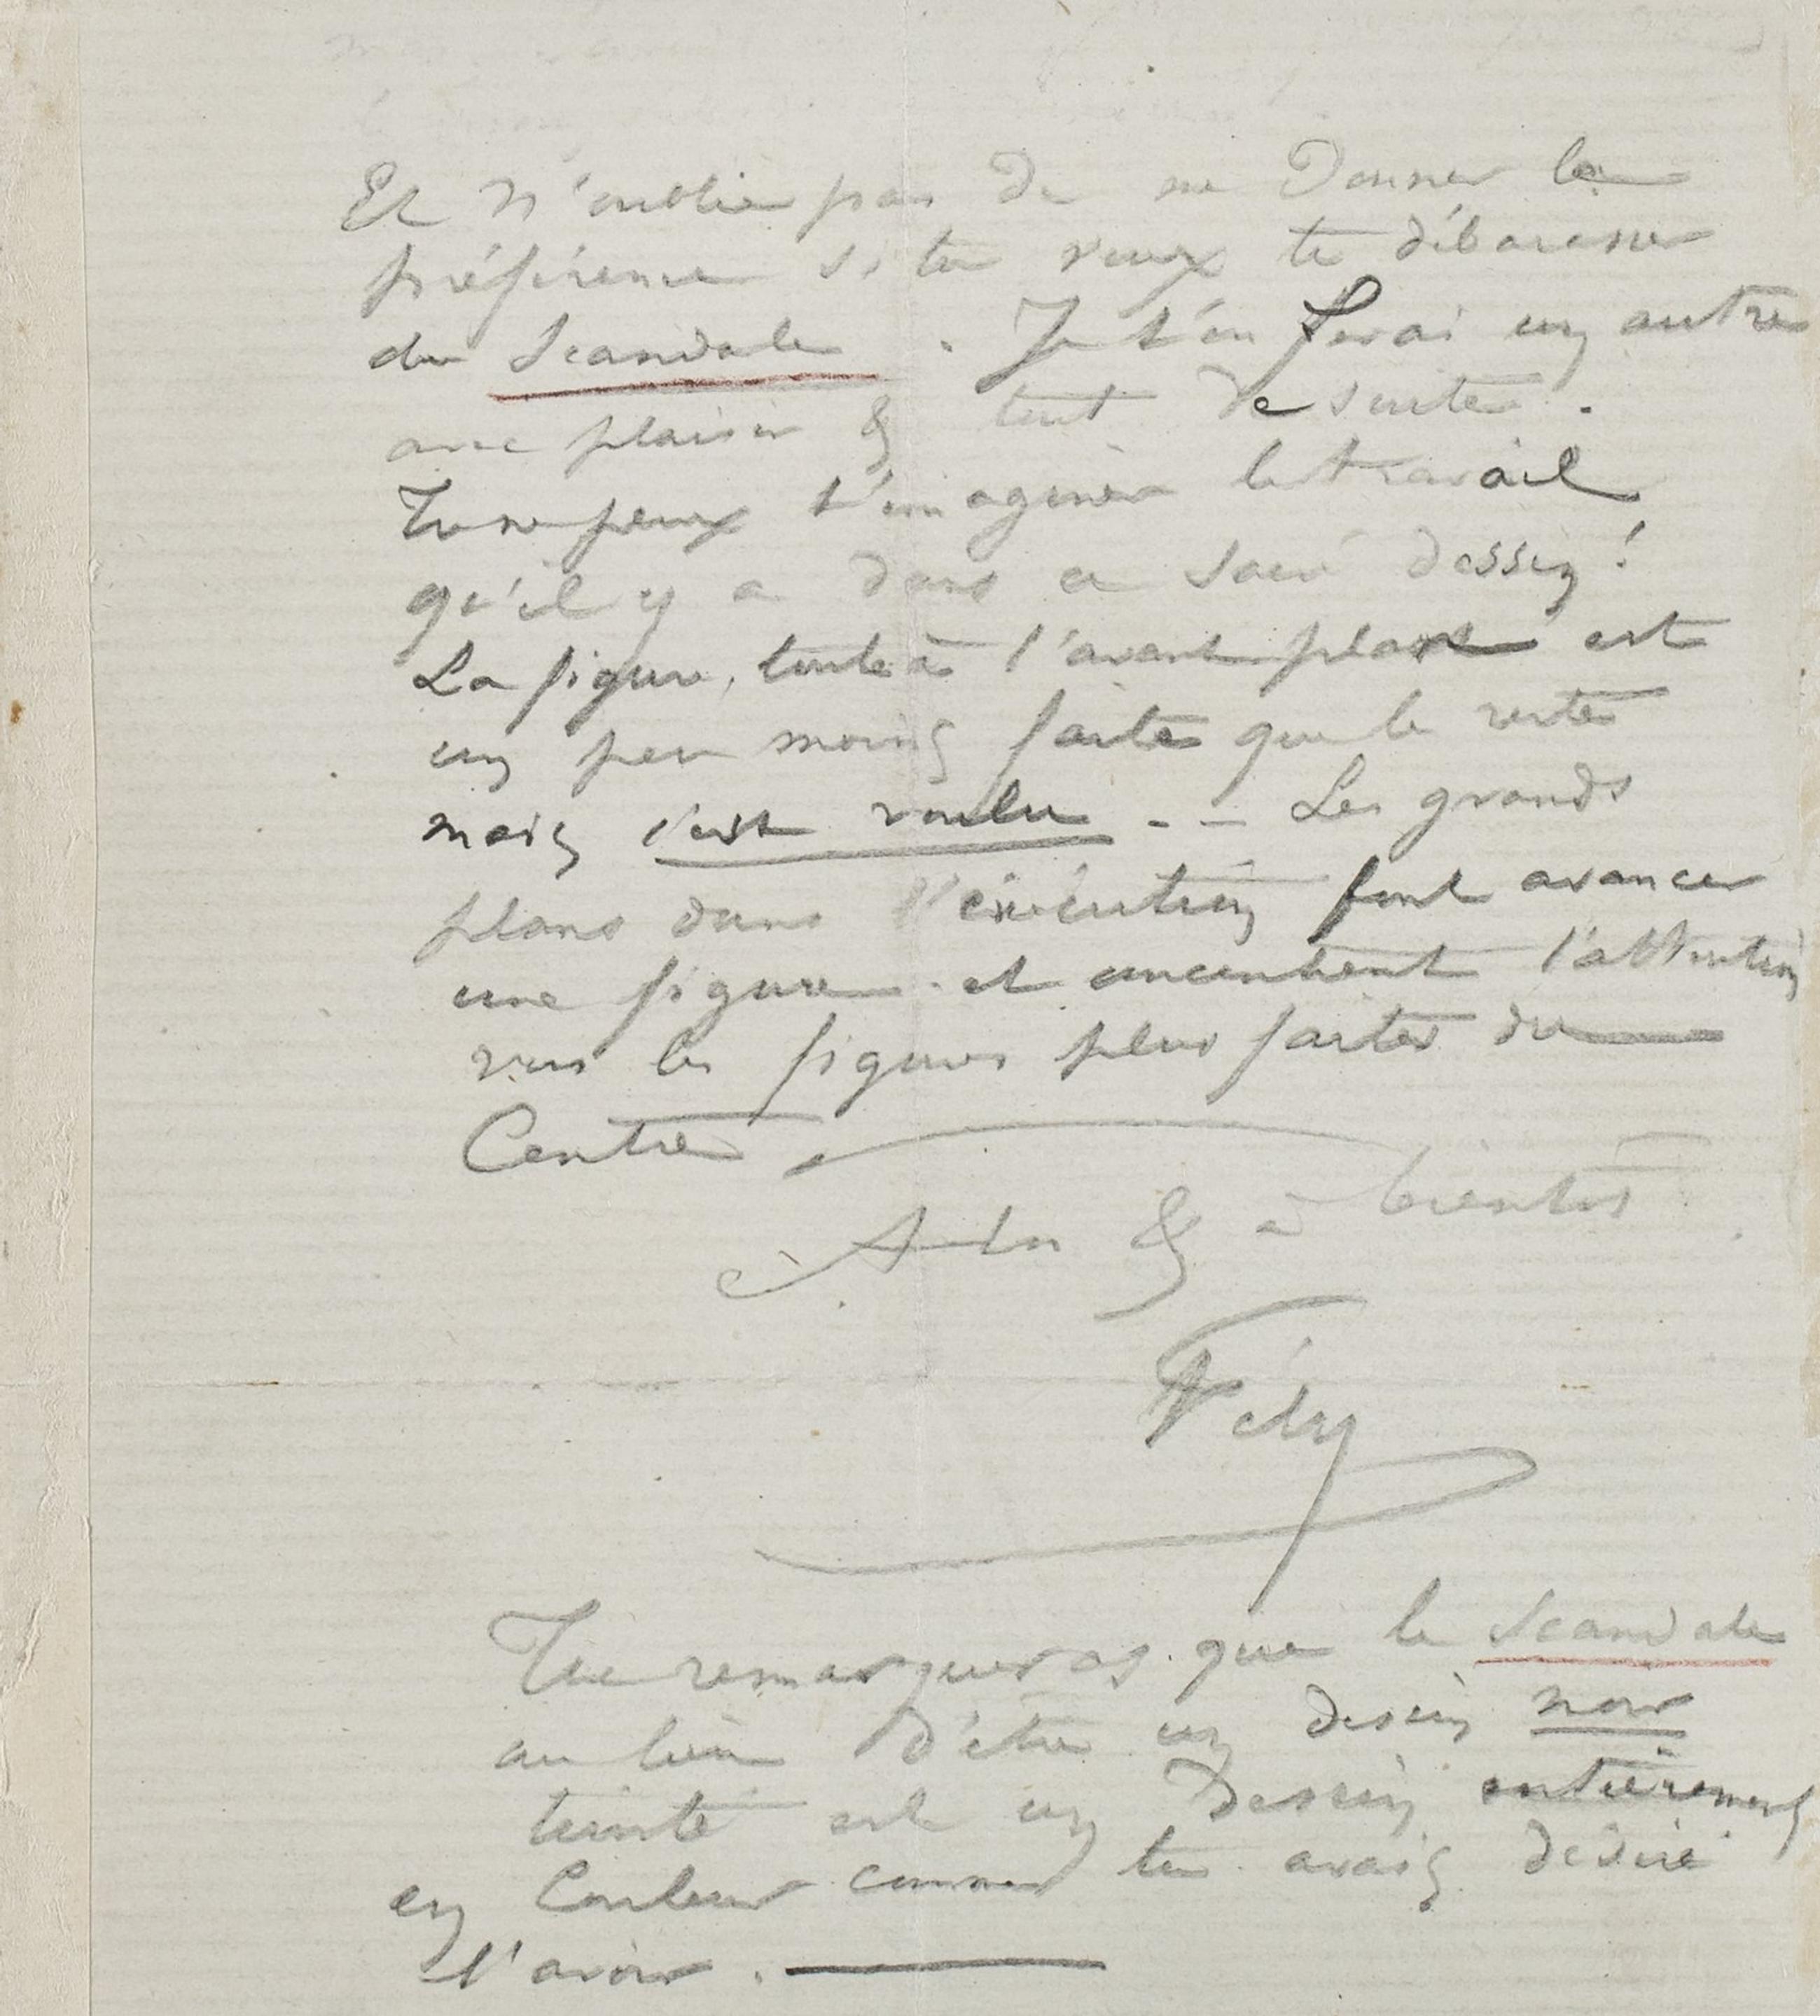 Et n'oublie pas de me Donner la
préférence si tu veux te débarasser
du Scandale. Je t'en ferai un autre
avec plaisir & tout de suite.
Tu ne peux t'imaginer le travail
qu'il y a dans ce sacré dessin !
La figure, toute à l'avant plan est
un peu moins faite que le reste
mais c'est voulu -- Les grands
plans dans l'exécution font avancer
une figure et concentrent l'attention
vers les figures plus faites du
Centre
& à bientôt
Fély
Tu remarqueras que le Scandale
au lieu d'être un dessin noir
teinté est un Dessin entièrement
en Couleur comme tu avais désiré
l'avoir. —